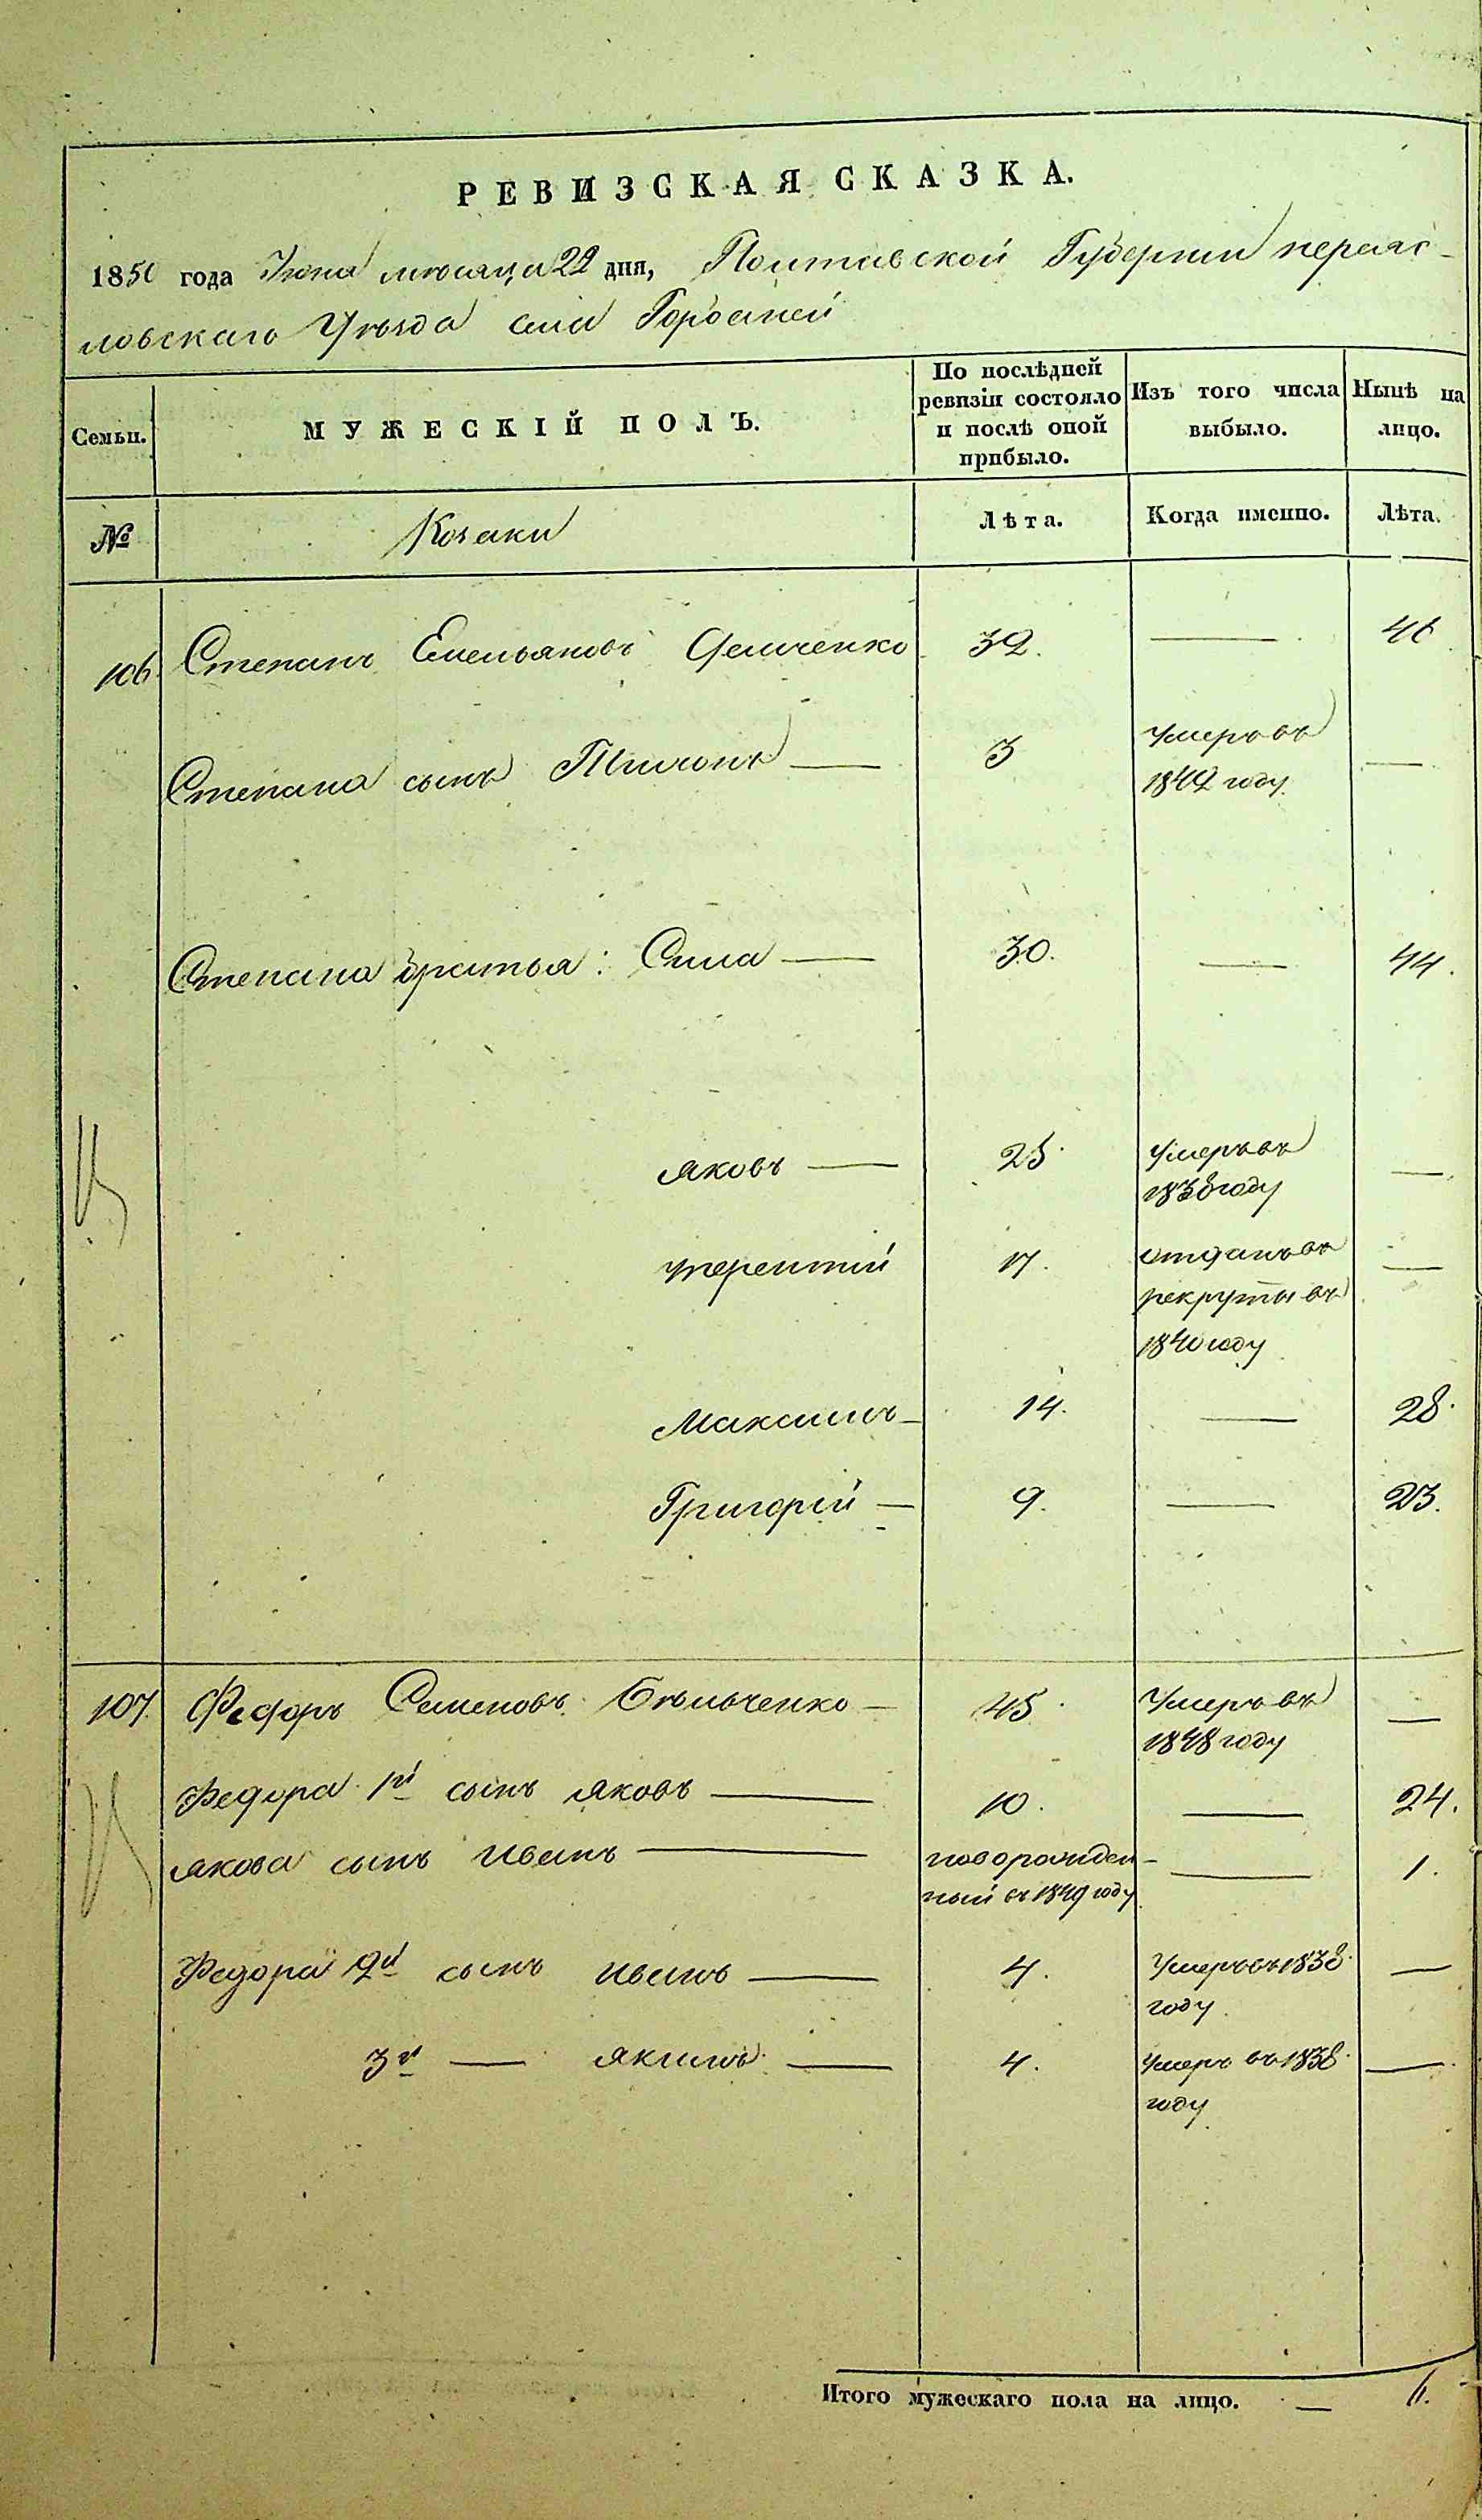 РЕВИЗСКАЯ СКАЗКА.
1850 года Іюня мѣсяца 22 дня, Полтавской Губерніи переяс-
ловскаго Уѣзда села
Семьи.
МУЖЕСКІЙ ПОЛЪ.
По послѣдней ревизіи состояло и послѣ оной прибыло.
Изъ того числа выбыло.
Нынѣ на лицо.
№
Козаки
Лѣта.
Когда именно.
Лѣта.
106. Степанъ Емельяновъ Демченко 32. — 46
Степана сынъ Тимонъ — 3 Умеръ въ —
1842 году.
Степана братья: Сила — 30. — 44.
яковъ — 25. Умеръ въ —
1838 году
терентій 17. отданъ въ —
рекруты въ
1840 году
Максимъ — 14. — 28.
Григорій — 9. — 23.
107. Федоръ Семеновъ Бѣльченко — 45. Умеръ въ —
1848 году
Федора 1й сынъ яковъ — 10. — 24.
якова сынъ иванъ — новорожден- — 1.
ный въ 1849 году
Федора 2й сынъ иванъ — 4. Умеръ въ 1838 —
году.
3й — якимъ — 4. умеръ въ 1838 —
году
Итого мужескаго пола на лицо. — 6.